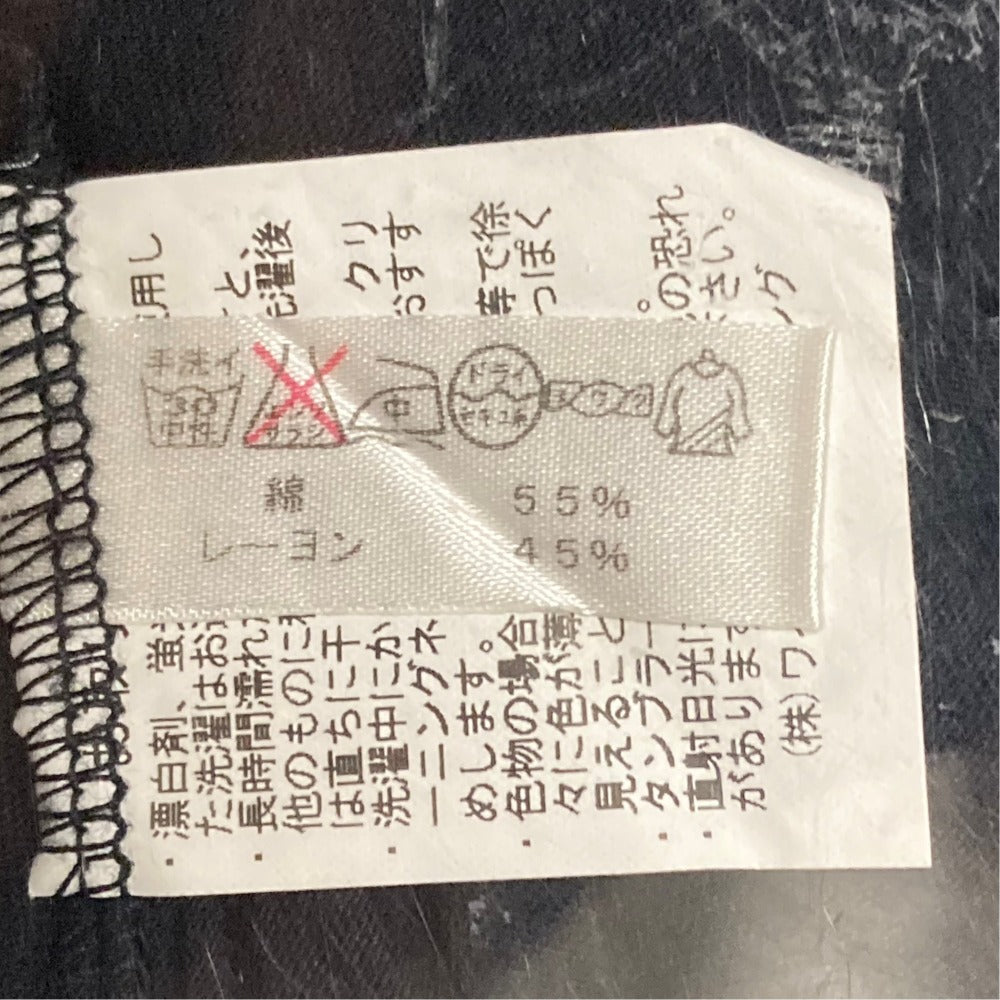 手洗イ
中性
ドライ
セキユ系
ヨワク
中
綿 55%
レーヨン 45%
・漂白剤、蛍 用し
た洗濯はお
・長時間濡れ と、
他のものに 洗濯後
は直ちに干
・洗濯中にか クリ
ーニングネ おすす
めします。
・色物の場合 等で徐
々に色が薄 っぽく
見えること
・タンブラー 。
・直射日光に の恐れ
がありま さい。
(株)ワ ング